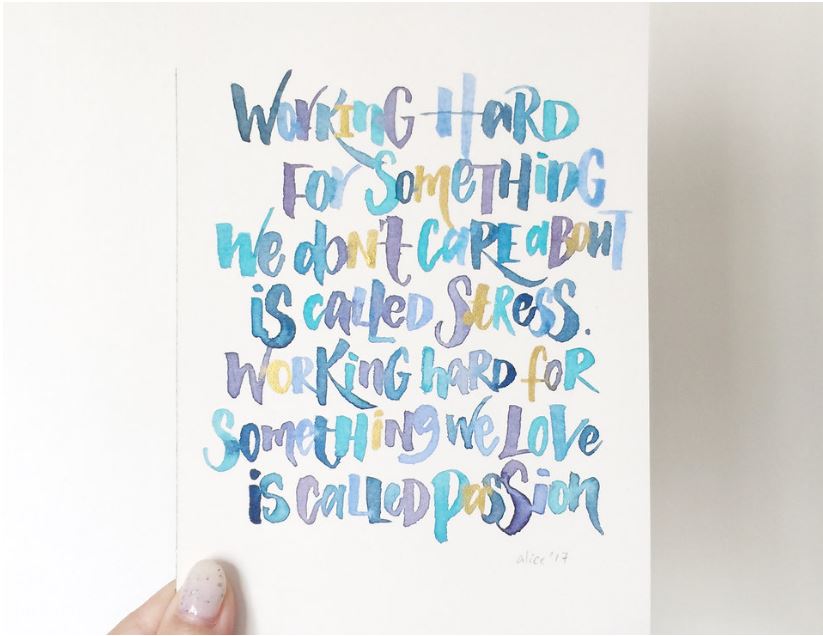 Working Hard
for Something
we don't care about
is called Stress.
Working hard for
Something we Love
is called passion
alice '17